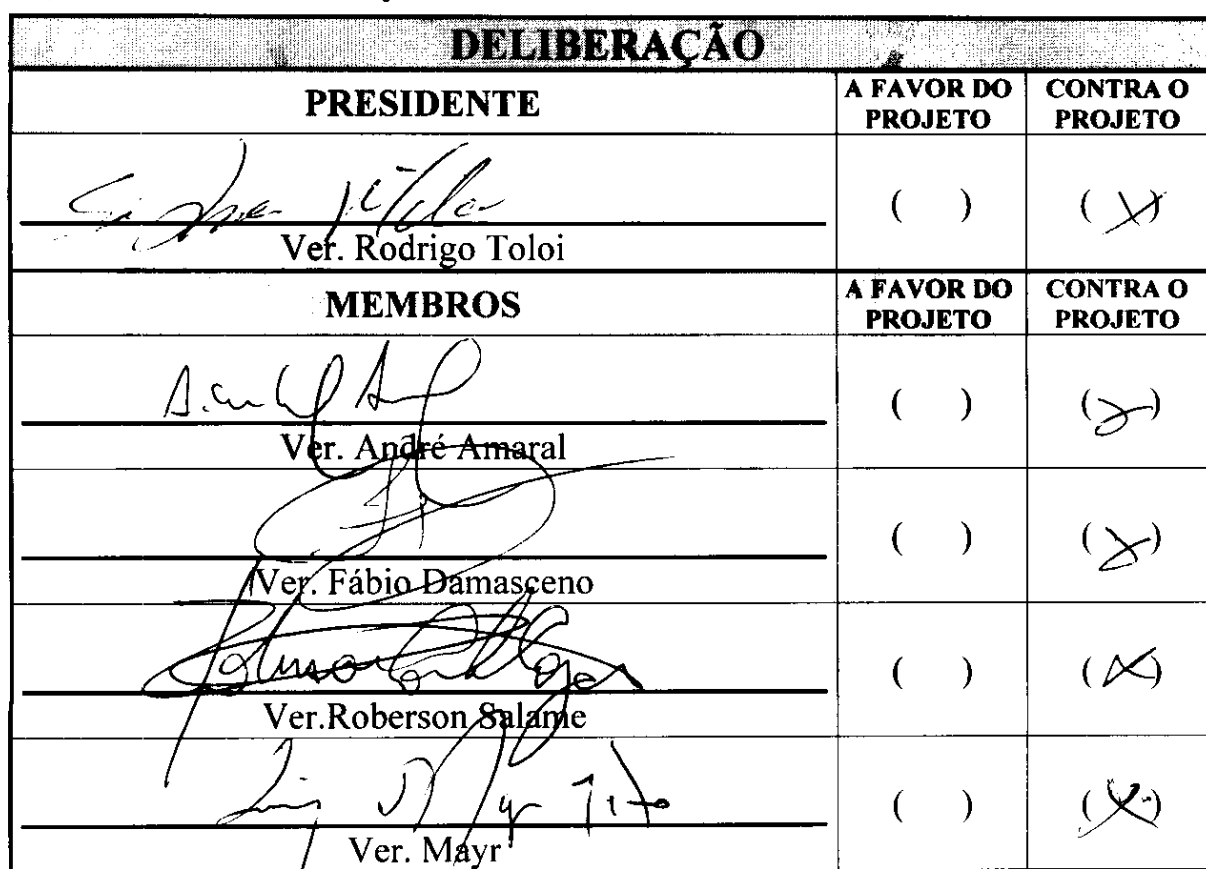 DELIBERAÇÃO
PRESIDENTE A FAVOR DO PROJETO CONTRA O PROJETO
( ) (X)
Ver. Rodrigo Toloi
MEMBROS A FAVOR DO PROJETO CONTRA O PROJETO
( ) (X)
Ver. André Amaral
( ) (X)
Ver. Fábio Damasceno
( ) (X)
Ver.Roberson Salame
( ) (X)
Ver. Mayr